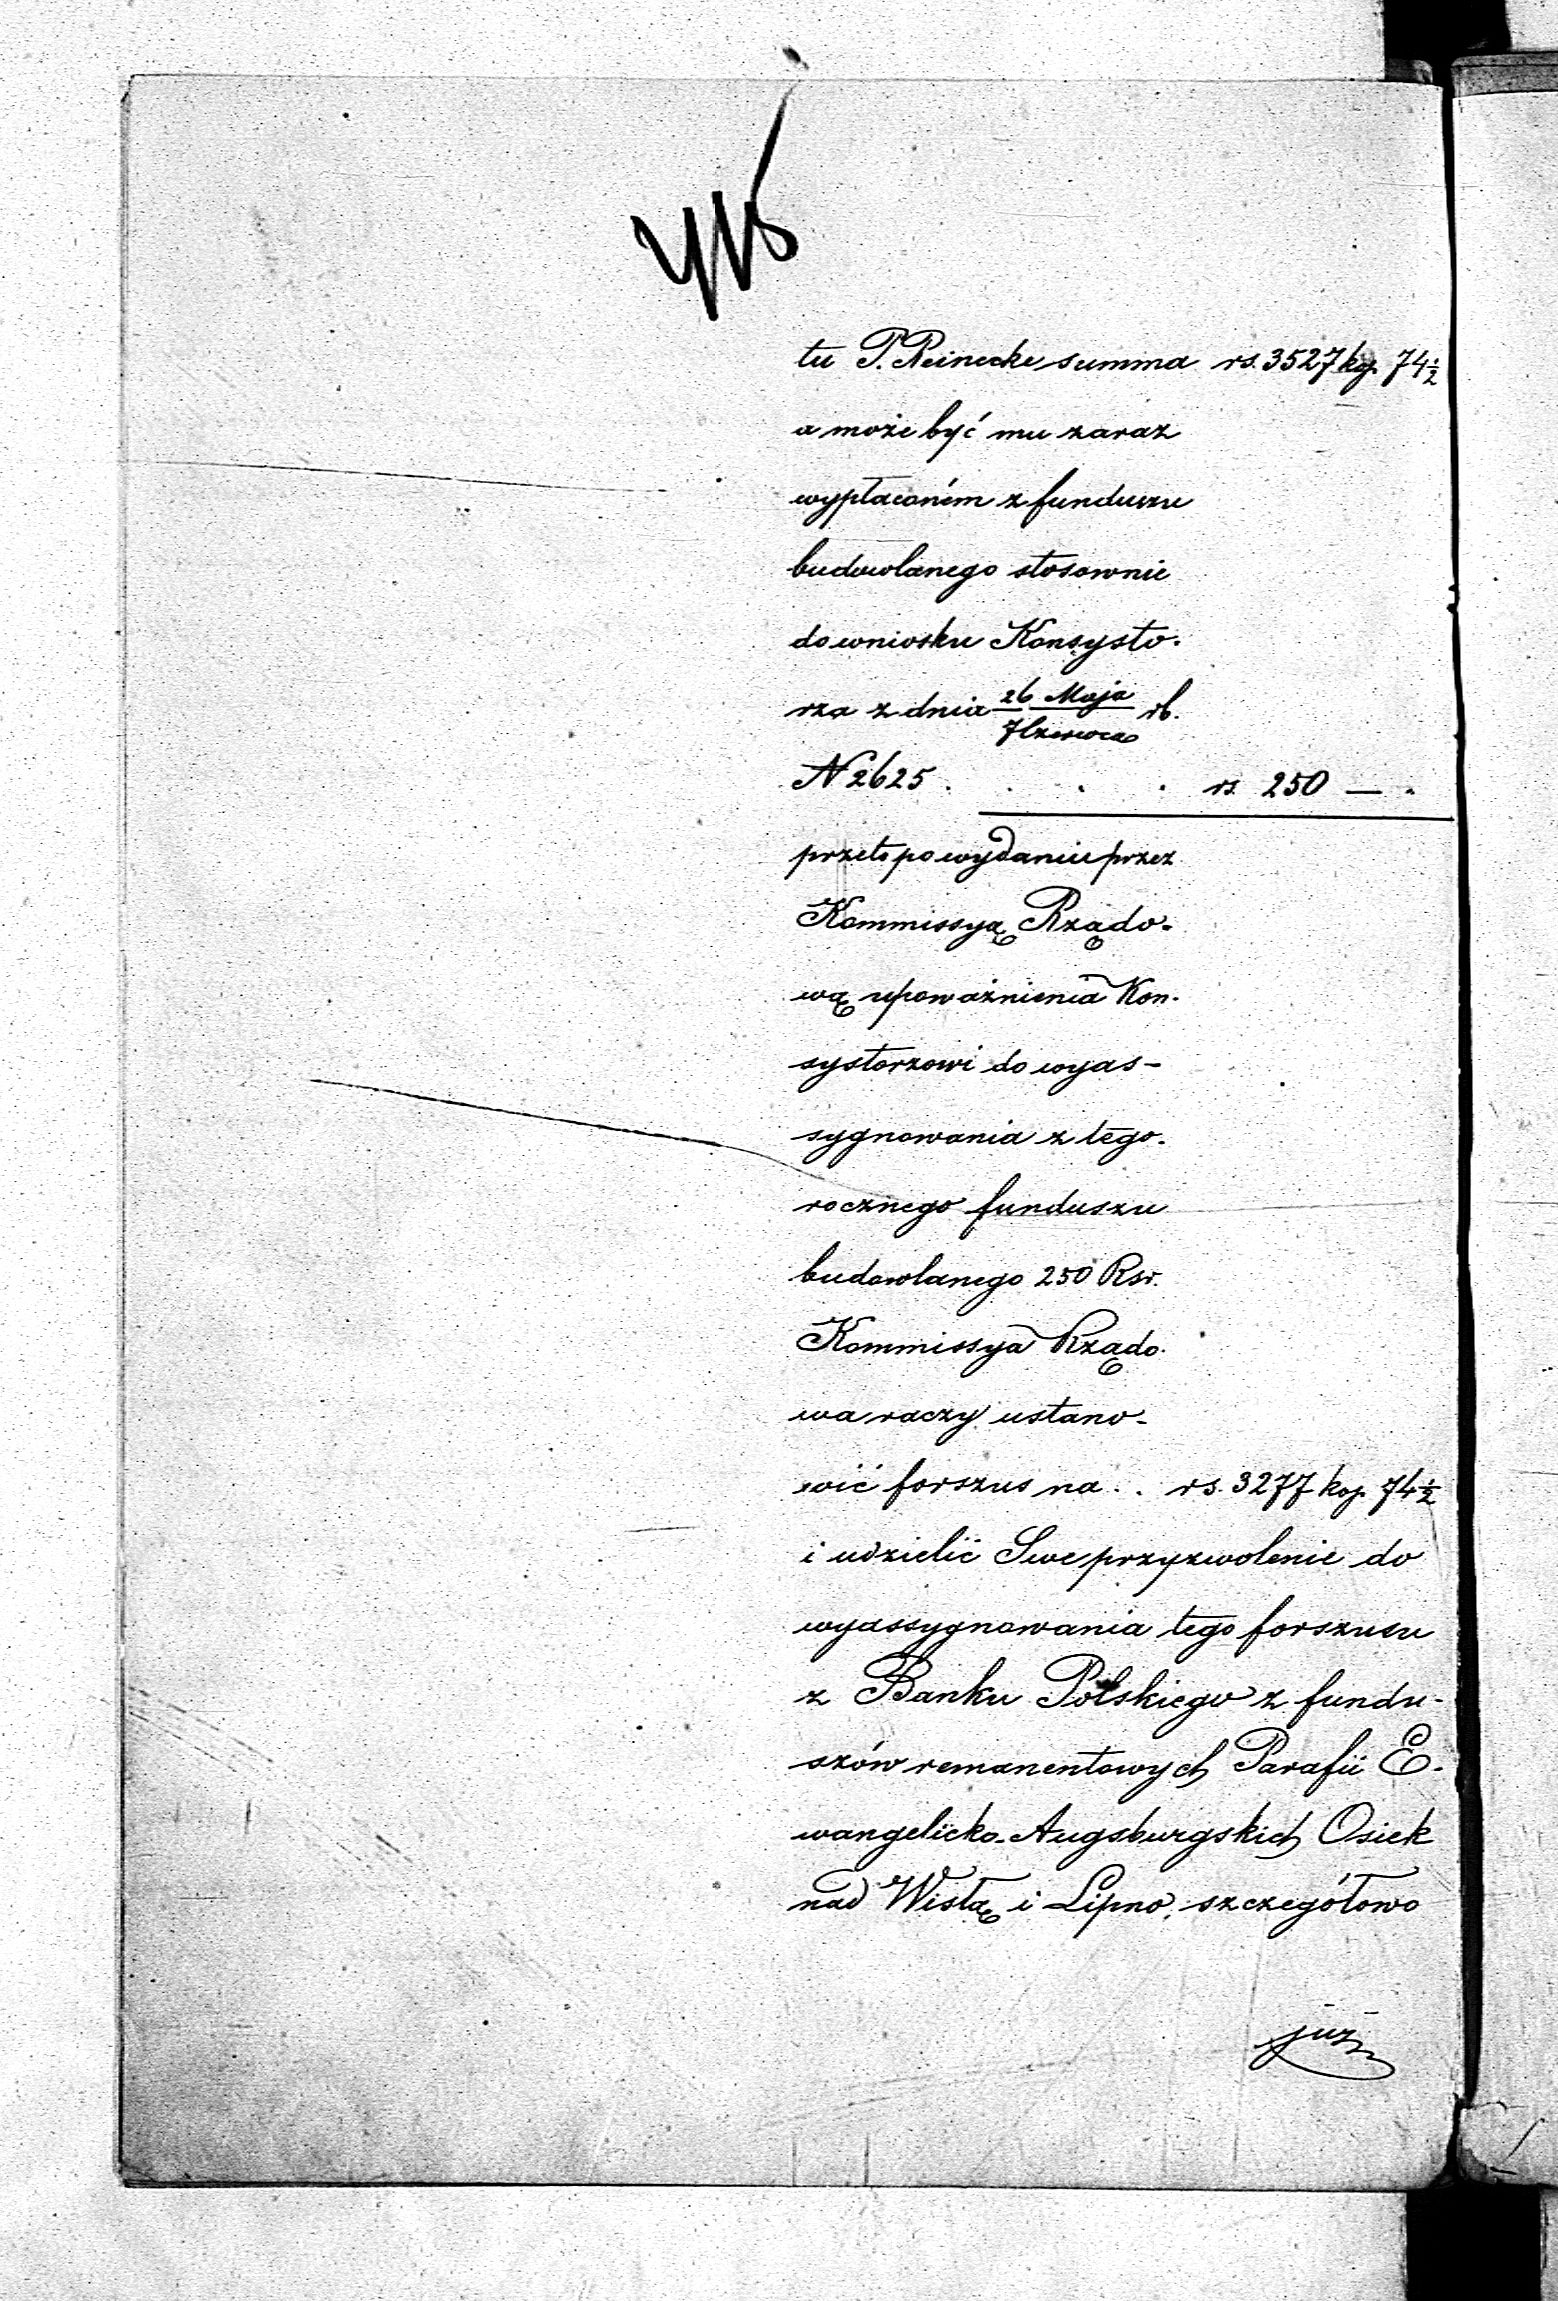 tu P. Reinecke summa rs. 3527 kp. 74½
a może być mu zaraz
wypłaconém z funduszu
budowlanego stosownie
do wniosku Konsysto-
rza z dnia 26 Maja / 7 Czerwca rb.
N 2625 . . . . rs. 250 — .
przeto po wydaniu przez
Kommissyą Rządo-
wą upoważnienia Kon-
systorzowi do wyas-
sygnowania z tego-
rocznego funduszu
budowlanego 250 Rsr.
Kommissya Rządo-
wa raczy ustano-
wić forszus na . . rs. 3277 kop. 74½
i udzielić Swe przyzwolenie do
wyassygnowania tego forszusu
z Banku Polskiego z fundu-
szów remanentowych Parafii E-
wangelicko-Augsburgskich Osiek
nad Wisłą i Lipno, szczegółowo
już